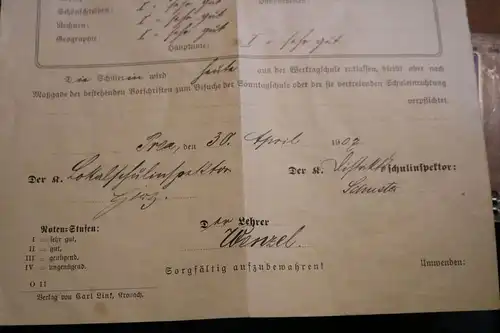 Schönschreiben I = sehr gut
Turnen
Geographie I = sehr gut
Hauptnote I = sehr gut
Die Schülerin wird heute aus der Werktagschule entlassen, bleibt aber nach
Maßgabe der bestehenden Vorschriften zum Besuche der Sonntagschule oder der sie vertretenden Schuleinrichtung
verpflichtet.
den 30. April 1902
Der K. Lokalschulinspektor
Der K. Distriktsschulinspektor:
Der Lehrer
Wenzel.
Noten-Stufen:
I = sehr gut,
II = gut,
III = genügend,
IV = ungenügend.
Sorgfältig aufzubewahren!
Umwenden:
O 11
Verlag von Carl Link, Kronach.